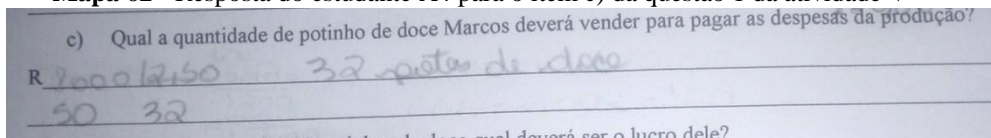 c) Qual a quantidade de potinho de doce Marcos deverá vender para pagar as despesas da produção?
R 8000 |2,50 32 potes de doce
50 32